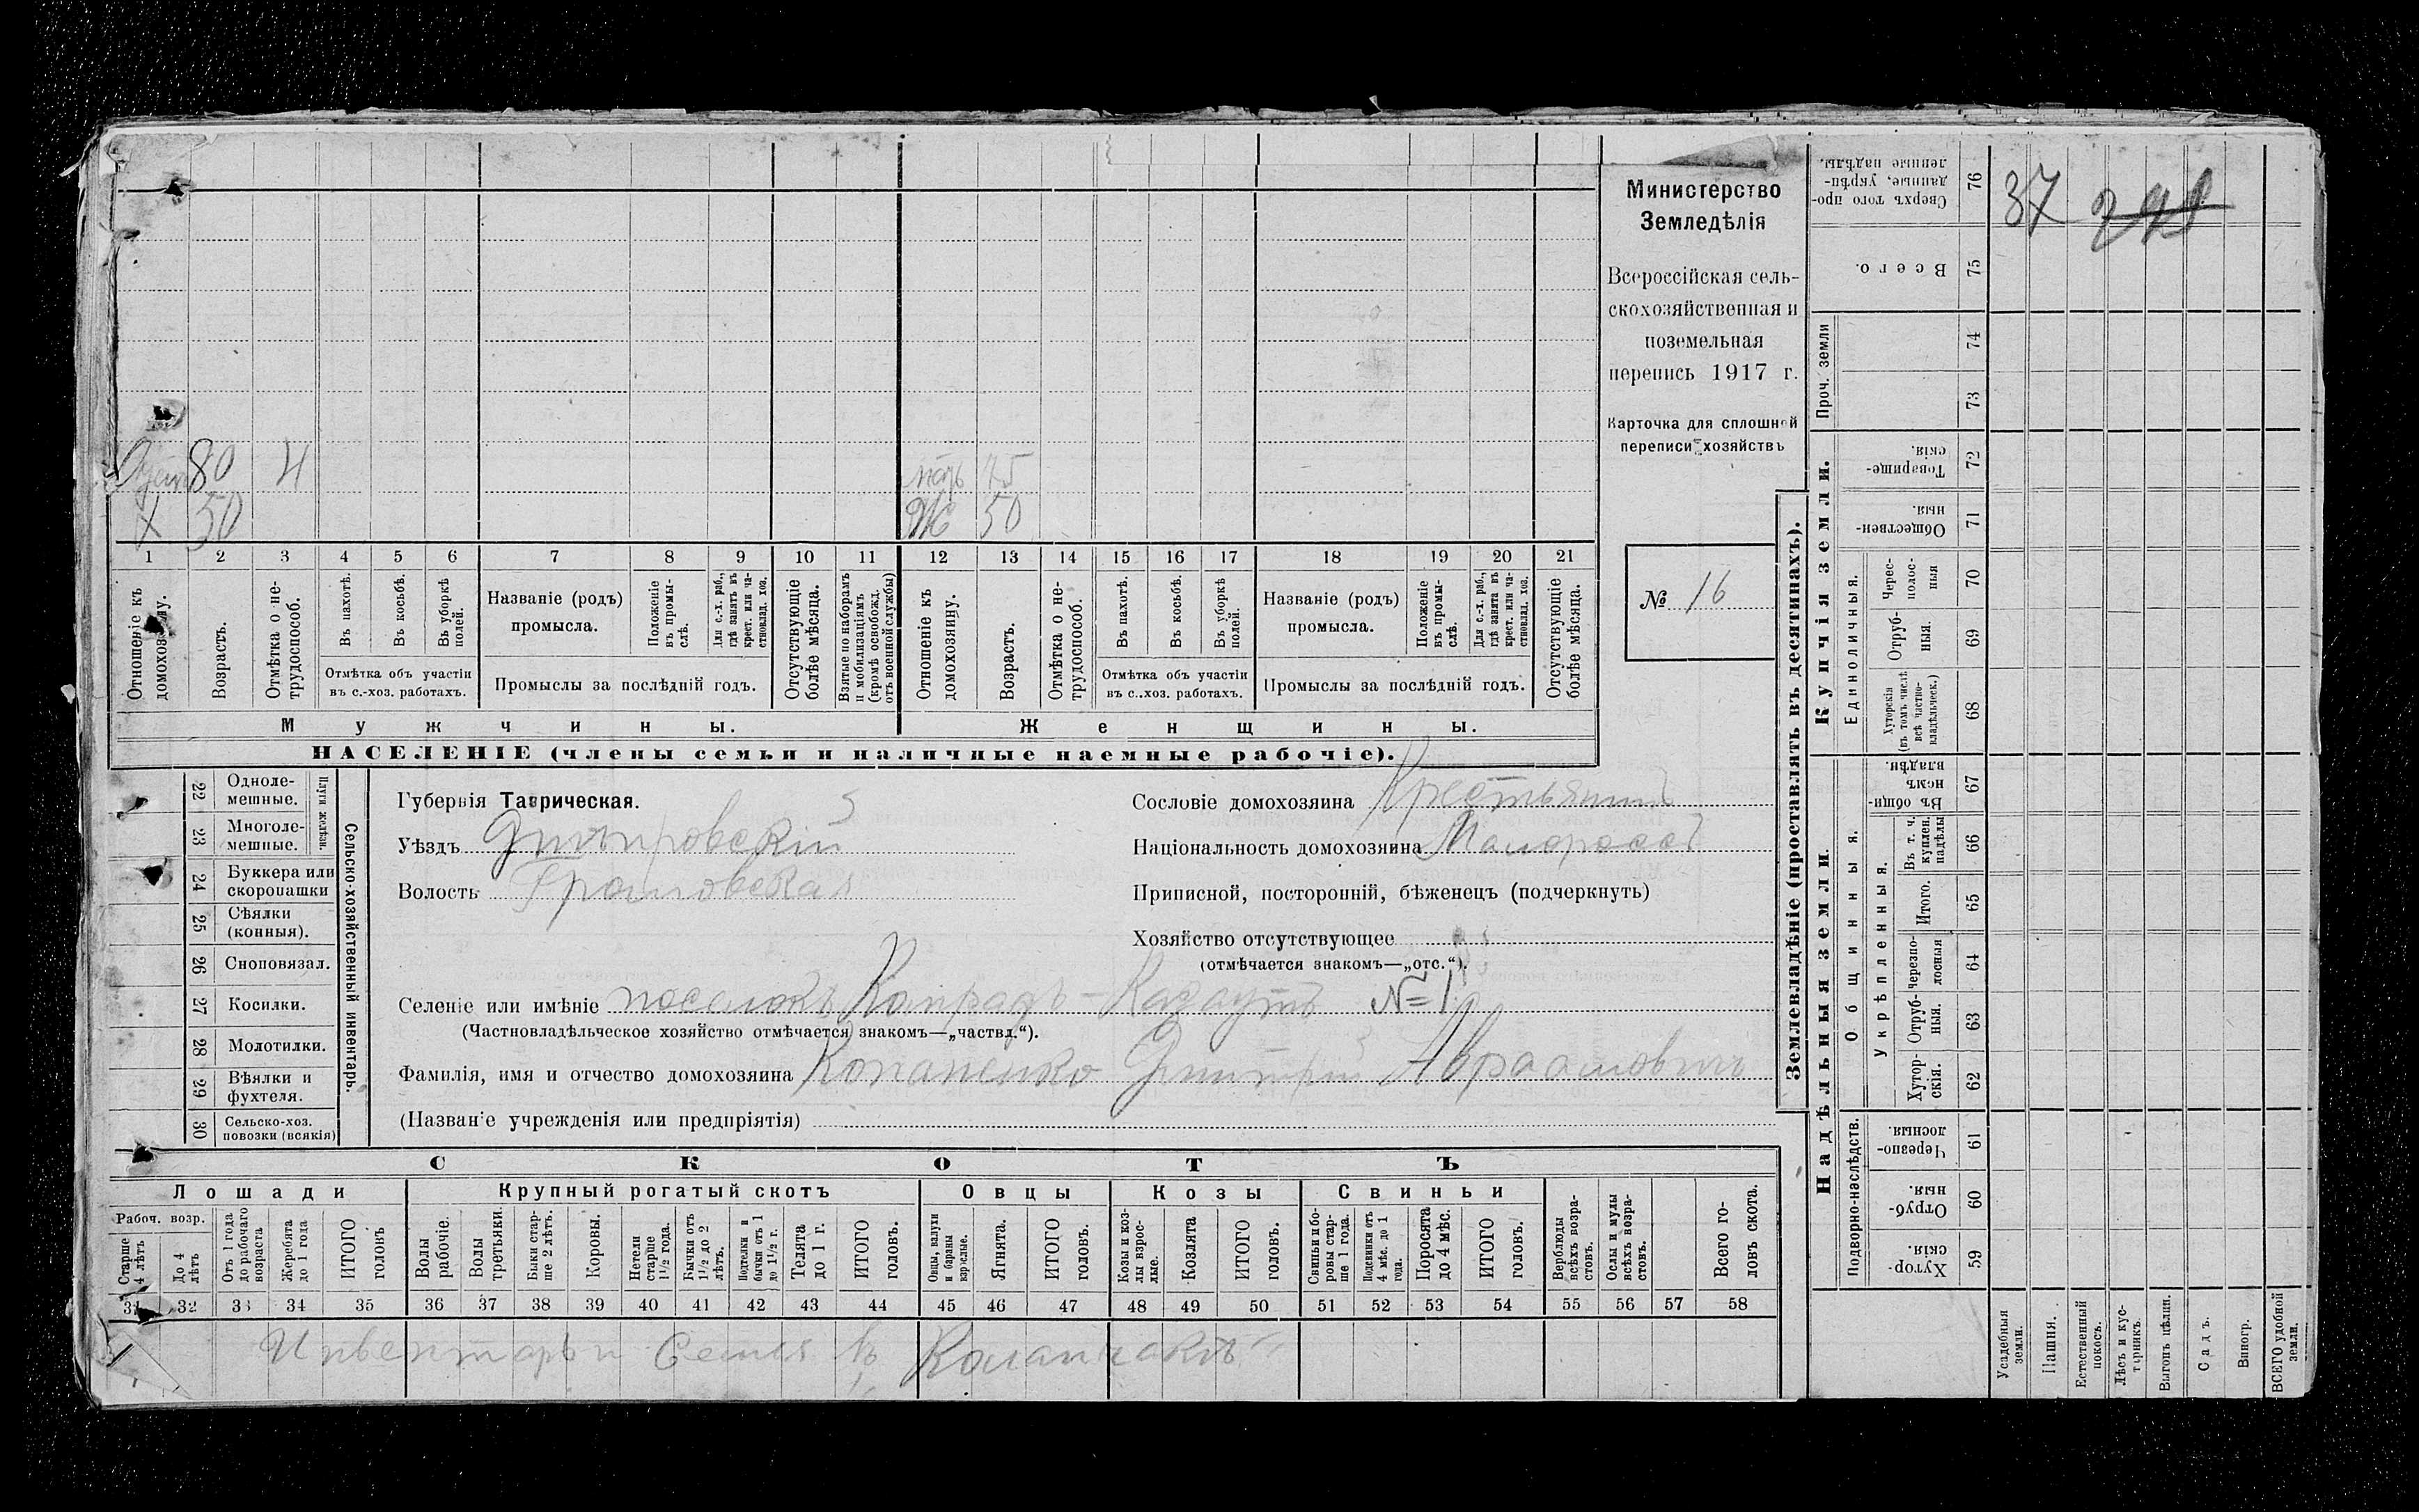 Министерство
Земледѣлія
Всероссійская сель-
скохозяйственная и
поземельная
перепись 1917 г.
Карточка для сплошной
переписи хозяйствъ
№ 16
80 4 75
Х 50 Ж 50
1 2 3 4 5 6 7 8 9 10 11 12 13 14 15 16 17 18 19 20 21
Отношеніе къ домохозяину.
Возрастъ.
Отмѣтка о не-трудоспособ.
Въ пахотѣ.
Въ косьбѣ.
Въ уборкѣ полей.
Отмѣтка объ участіи
въ с.-хоз. работахъ.
Названіе (родъ)
промысла.
Положеніе въ промы-слѣ.
Для с.-х. раб., гдѣ занятъ въ крест. или ча-стновлад. хоз.
Промыслы за послѣдній годъ.
Отсутствующіе болѣе мѣсяца.
Взятые по наборамъ и мобилизаціямъ (кромѣ освобожд. отъ военной службы)
Отношеніе къ домохозяину.
Возрастъ.
Отмѣтка о не-трудоспособ.
Въ пахотѣ.
Въ косьбѣ.
Въ уборкѣ полей.
Отмѣтка объ участіи
въ с.-хоз. работахъ.
Названіе (родъ)
промысла.
Положеніе въ промы-слѣ.
Для с.-х. раб., гдѣ занята въ крест. или ча-стновлад. хоз.
Промыслы за послѣдній годъ.
Отсутствующіе болѣе мѣсяца.
Мужчины. Женщины.
НАСЕЛЕНІЕ (члены семьи и наличные наемные рабочіе).
Сельско-хозяйственный инвентарь.
Плуги желѣзн.
22 Одноле-мешные.
23 Многоле-мешные.
24 Буккера или скоропашки
25 Сѣялки (конныя).
26 Сноповязал.
27 Косилки.
28 Молотилки.
29 Вѣялки и фухтеля.
30 Сельско-хоз. повозки (всякія)
Губернія Таврическая.
Уѣздъ Днѣпровскій
Волость Громовская
Сословіе домохозяина Крестьянинъ
Національность домохозяина Малороссъ
Приписной, посторонній, бѣженецъ (подчеркнуть)
Хозяйство отсутствующее
(отмѣчается знакомъ—„отс.“).
Селеніе или имѣніе поселокъ №1
(Частновладѣльческое хозяйство отмѣчается знакомъ—„частвл.“).
Фамилія, имя и отчество домохозяина Копаненко Дмитрій Авраамовичъ
(Названіе учрежденія или предпріятія)
СКОТЪ
Лошади Крупный рогатый скотъ Овцы Козы Свиньи
Рабоч. возр.
Старше 4 лѣтъ
До 4 лѣтъ
Отъ 1 года до рабочаго возраста
Жеребята до 1 года
ИТОГО головъ
Волы рабочіе.
Волы третьяки.
Быки стар-ше 2 лѣтъ.
Коровы.
Нетели старше 1 1/2 года.
Бычки отъ 1 1/2 до 2 лѣтъ.
Подтелки и бычки отъ 1 до 1 1/2 г.
Телята до 1 г.
ИТОГО головъ.
Овцы, валухи и бараны взрослые.
Ягнята.
ИТОГО головъ.
Козы и коз-лы взрос-лые.
Козлята
ИТОГО головъ.
Свиньи и бо-ровы стар-ше 1 года.
Подсвинки отъ 4 мѣс. до 1 года.
Поросята до 4 мѣс.
ИТОГО головъ.
Верблюды всѣхъ возра-стовъ.
Ослы и мулы всѣхъ возра-стовъ.
Всего го-ловъ скота.
31 32 33 34 35 36 37 38 39 40 41 42 43 44 45 46 47 48 49 50 51 52 53 54 55 56 57 58
Инвентарь и Семья въ Каланчакѣ
Землевладѣніе (проставлять въ десятинахъ).
Купчія земли.
Надѣльныя земли.
Сверхъ того про-данные, укрѣп-ленные надѣлы. 76
37
Всего. 75
Проч. земли 74 73
Товарище-скія. 72
Обществен-ныя. 71
Единоличныя.
Черес-полос-ныя 70
Отруб-ныя. 69
Хуторскія (въ томъ числѣ всѣ частно-владѣльческ.) 68
Общинныя.
Въ общи-номъ владѣн. 67
Укрѣпленныя.
Въ т. ч. куплен. надѣлы 66
Итого. 65
Черезпо-лосныя 64
Отруб-ныя. 63
Хутор-скія. 62
Подворно-наслѣдств.
Черезпо-лосныя. 61
Отруб-ныя. 60
Хутор-скія. 59
Усадебныя земли.
Пашня.
Естественный покосъ.
Лѣсъ и кус-тарникъ.
Выгонъ цѣлин.
Садъ.
Виногр.
ВСЕГО удобной земли.